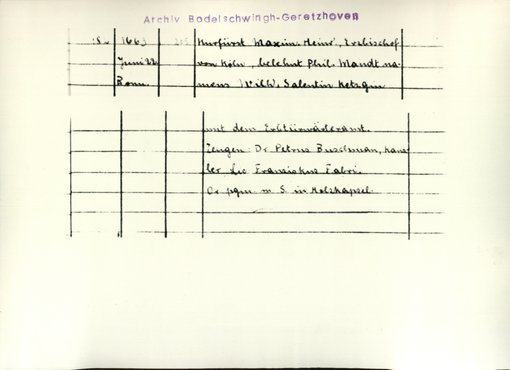 Archiv Bodelschwingh-Geretzhoven
1663 Kurfürst Maxim. Heinr., Erzbischof
Juni 22 von Köln, belehnt Phil. Mandt na-
Bonn. mens Wilh. Salentin
mit dem Erbtürwärteramt.
Zeugen: Dr. Petrus Buschman, Kanz-
ler Lic Franziskus Fabri.
Or pgm. m S. in Holzkapsel.